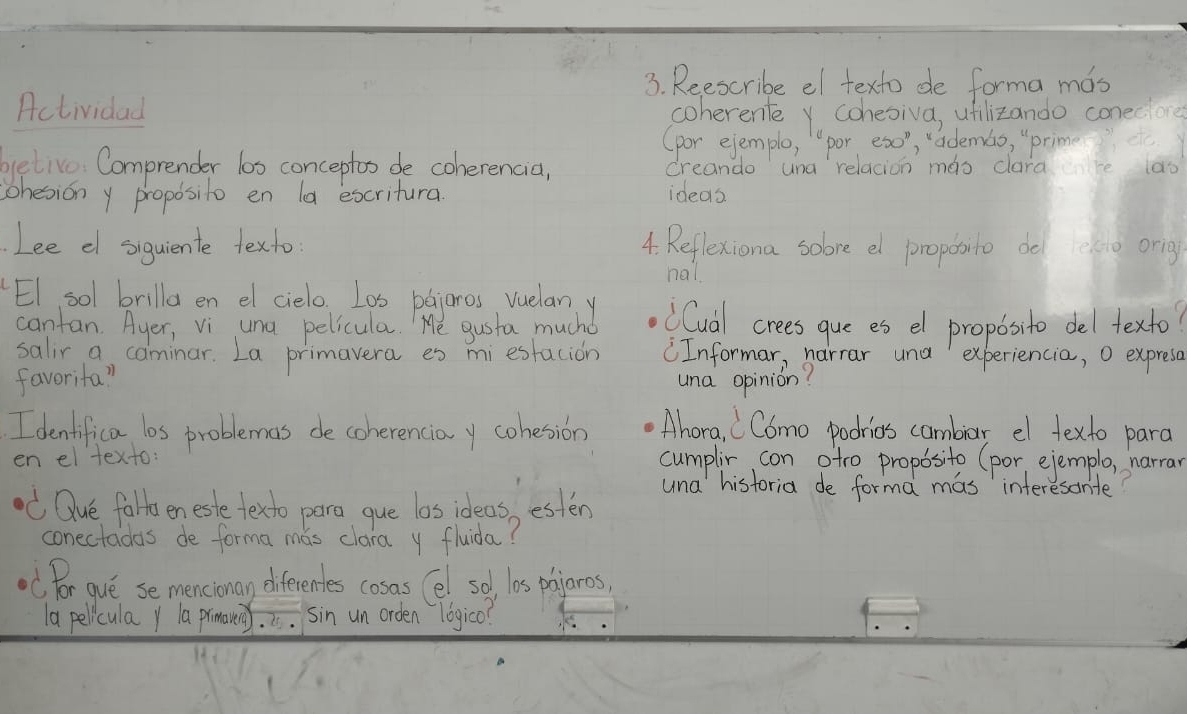 Actividad
bjetivo: Comprender los conceptos de coherencia,
cohesión y propósito en la escritura.
. Lee el siguiente texto:
"El sol brilla en el cielo. Los pájaros vuelan y
cantan. Ayer, vi una película. Me gusta mucho
salir a caminar. La primavera es mi estación
favorita"
. Identifica los problemas de coherencia y cohesión
en el texto:
• ¿Qué falta en este texto para que las ideas estén
conectadas de forma más clara y fluida?
• ¿Por qué se mencionan diferentes cosas (el sol, los pájaros,
la película y la primavera) sin un orden lógico?
3. Reescribe el texto de forma más
coherente y cohesiva, utilizando conectore
(por ejemplo, "por eso", "además, "primero", etc. y
creando una relación más clara entre las
ideas
4. Reflexiona sobre el propósito del texto origi
nal.
• ¿Cuál crees que es el propósito del texto?
¿Informar, narrar una experiencia, o expresa
una opinión?
• Ahora, ¿Cómo podrías cambiar el texto para
cumplir con otro propósito (por ejemplo, narrar
una historia de forma más interesante?